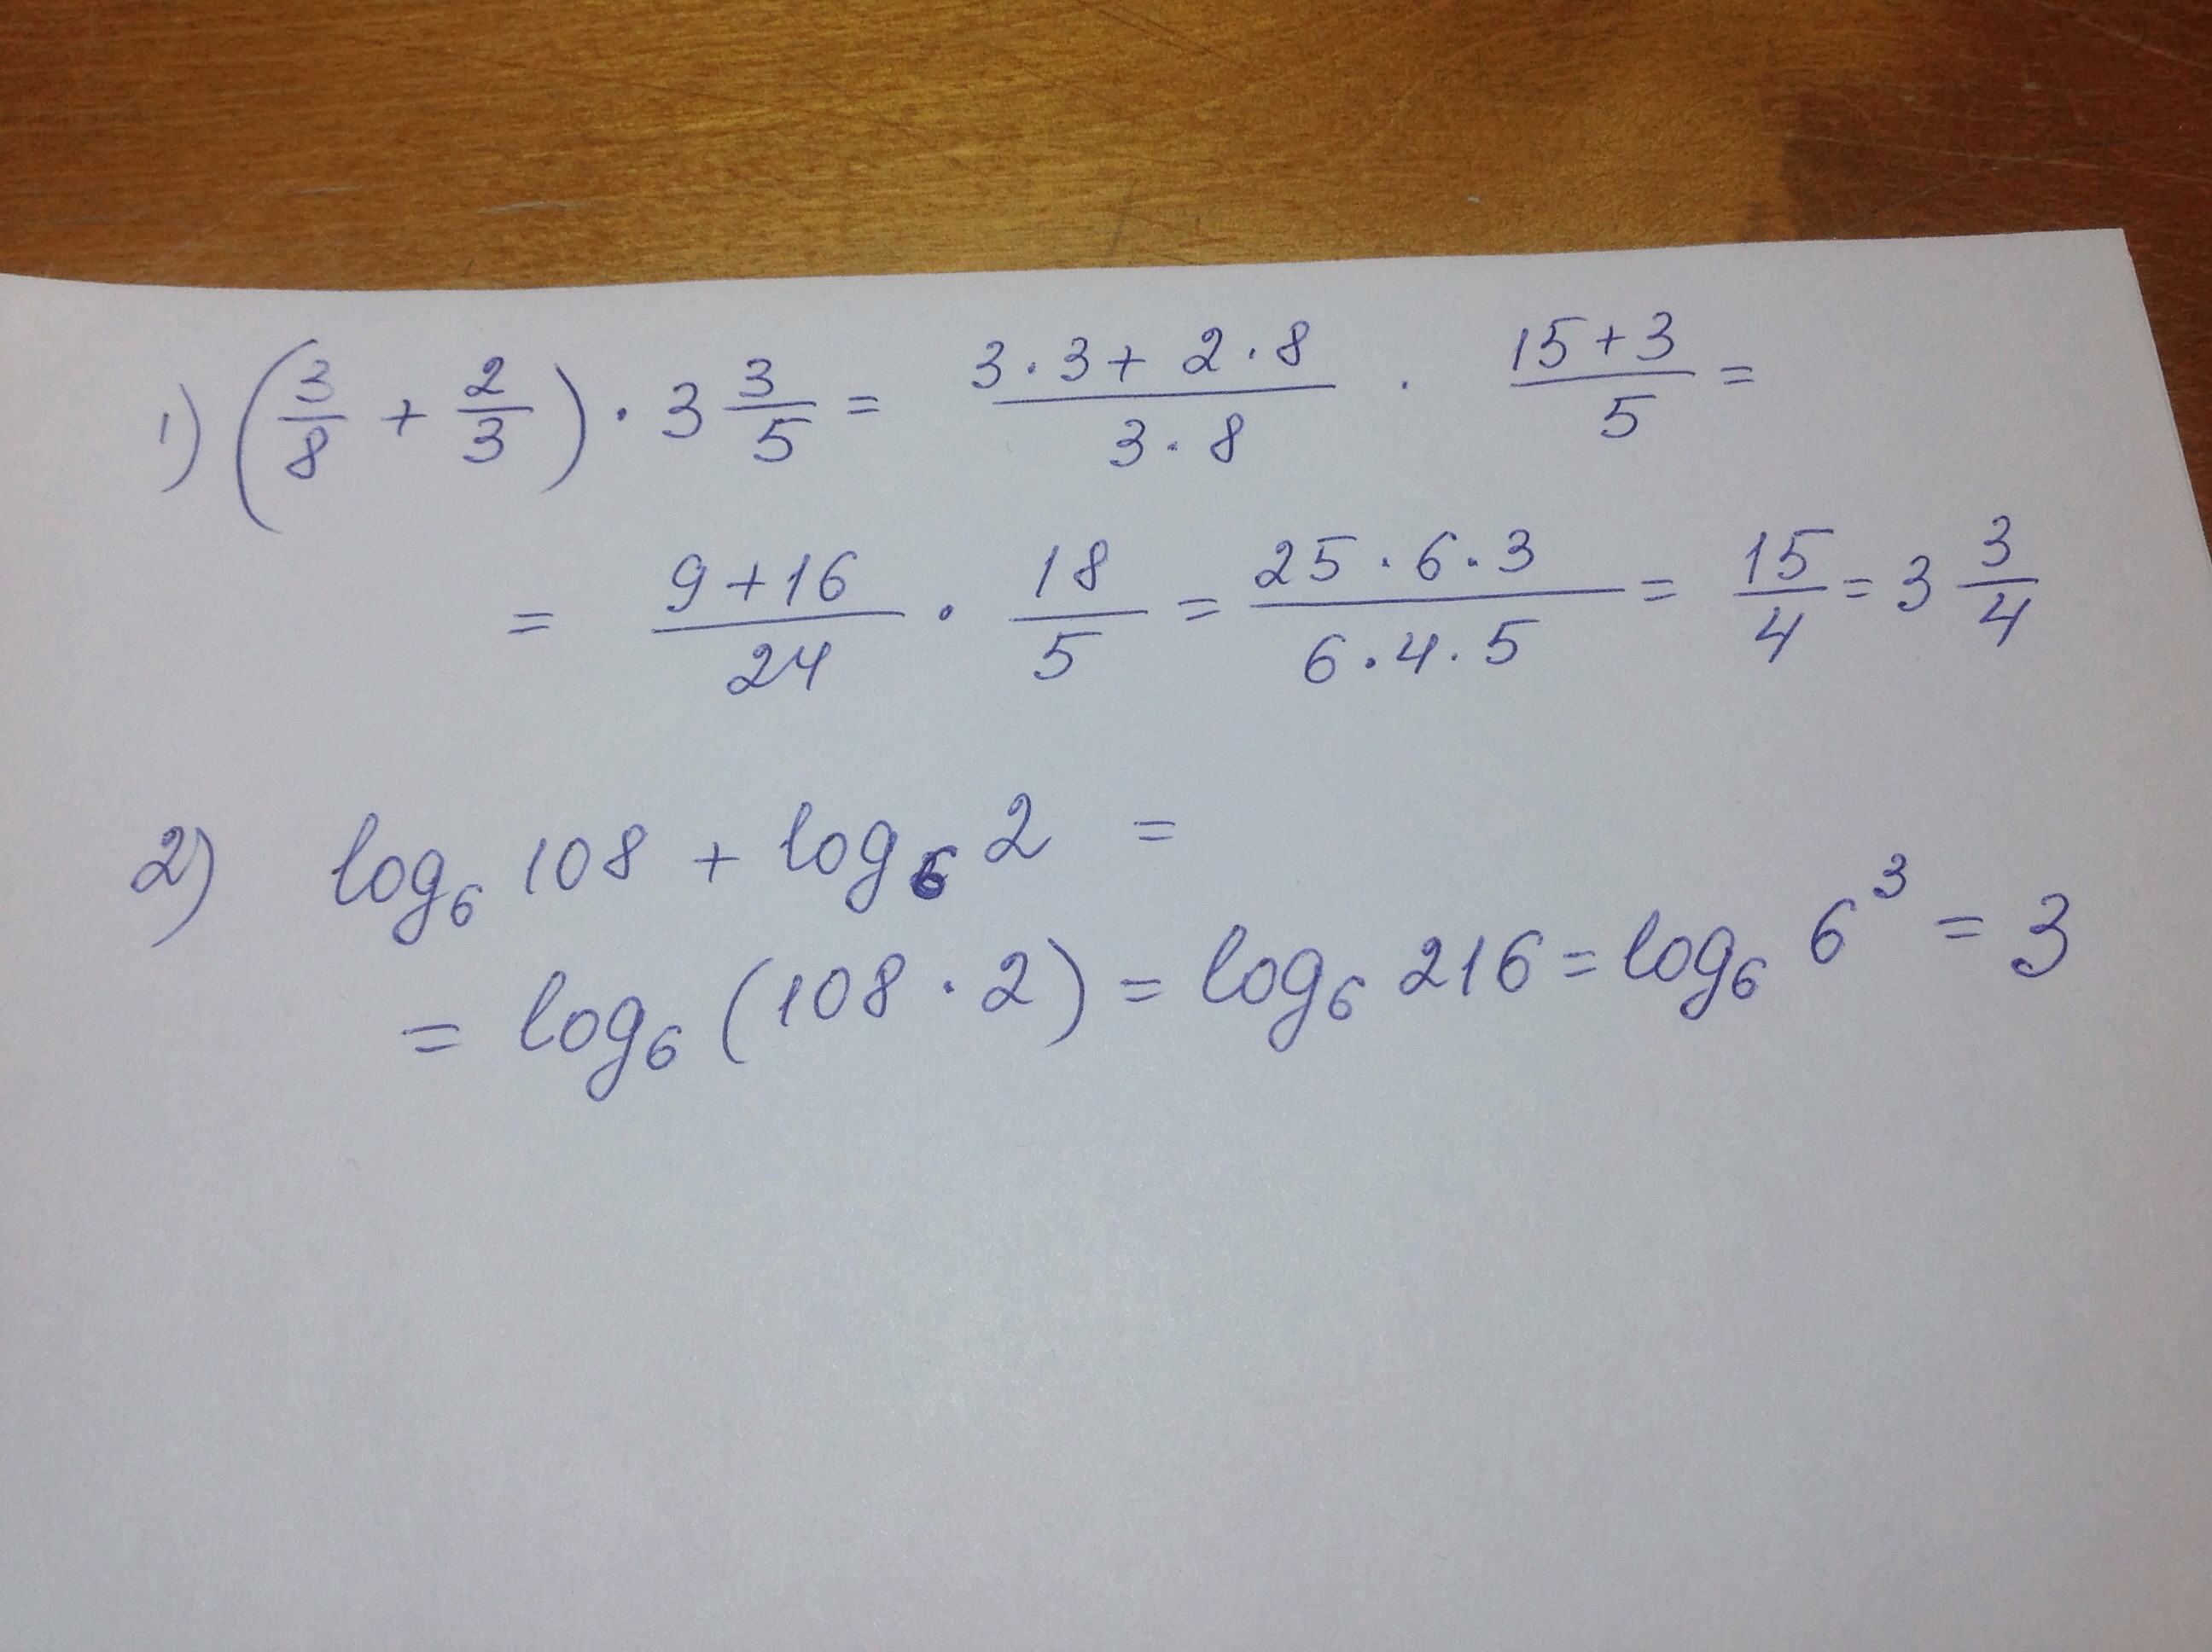 1) (3/8 + 2/3) · 3 3/5 = (3·3 + 2·8)/(3·8) · (15+3)/5 =
= (9+16)/24 · 18/5 = (25·6·3)/(6·4·5) = 15/4 = 3 3/4
2) log₆ 108 + log₆ 2 =
= log₆ (108 · 2) = log₆ 216 = log₆ 6³ = 3